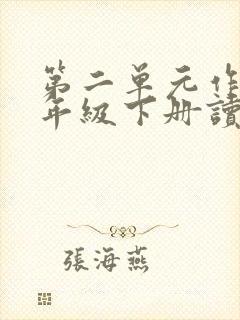 第二单元作
年级下册讀
張海燕